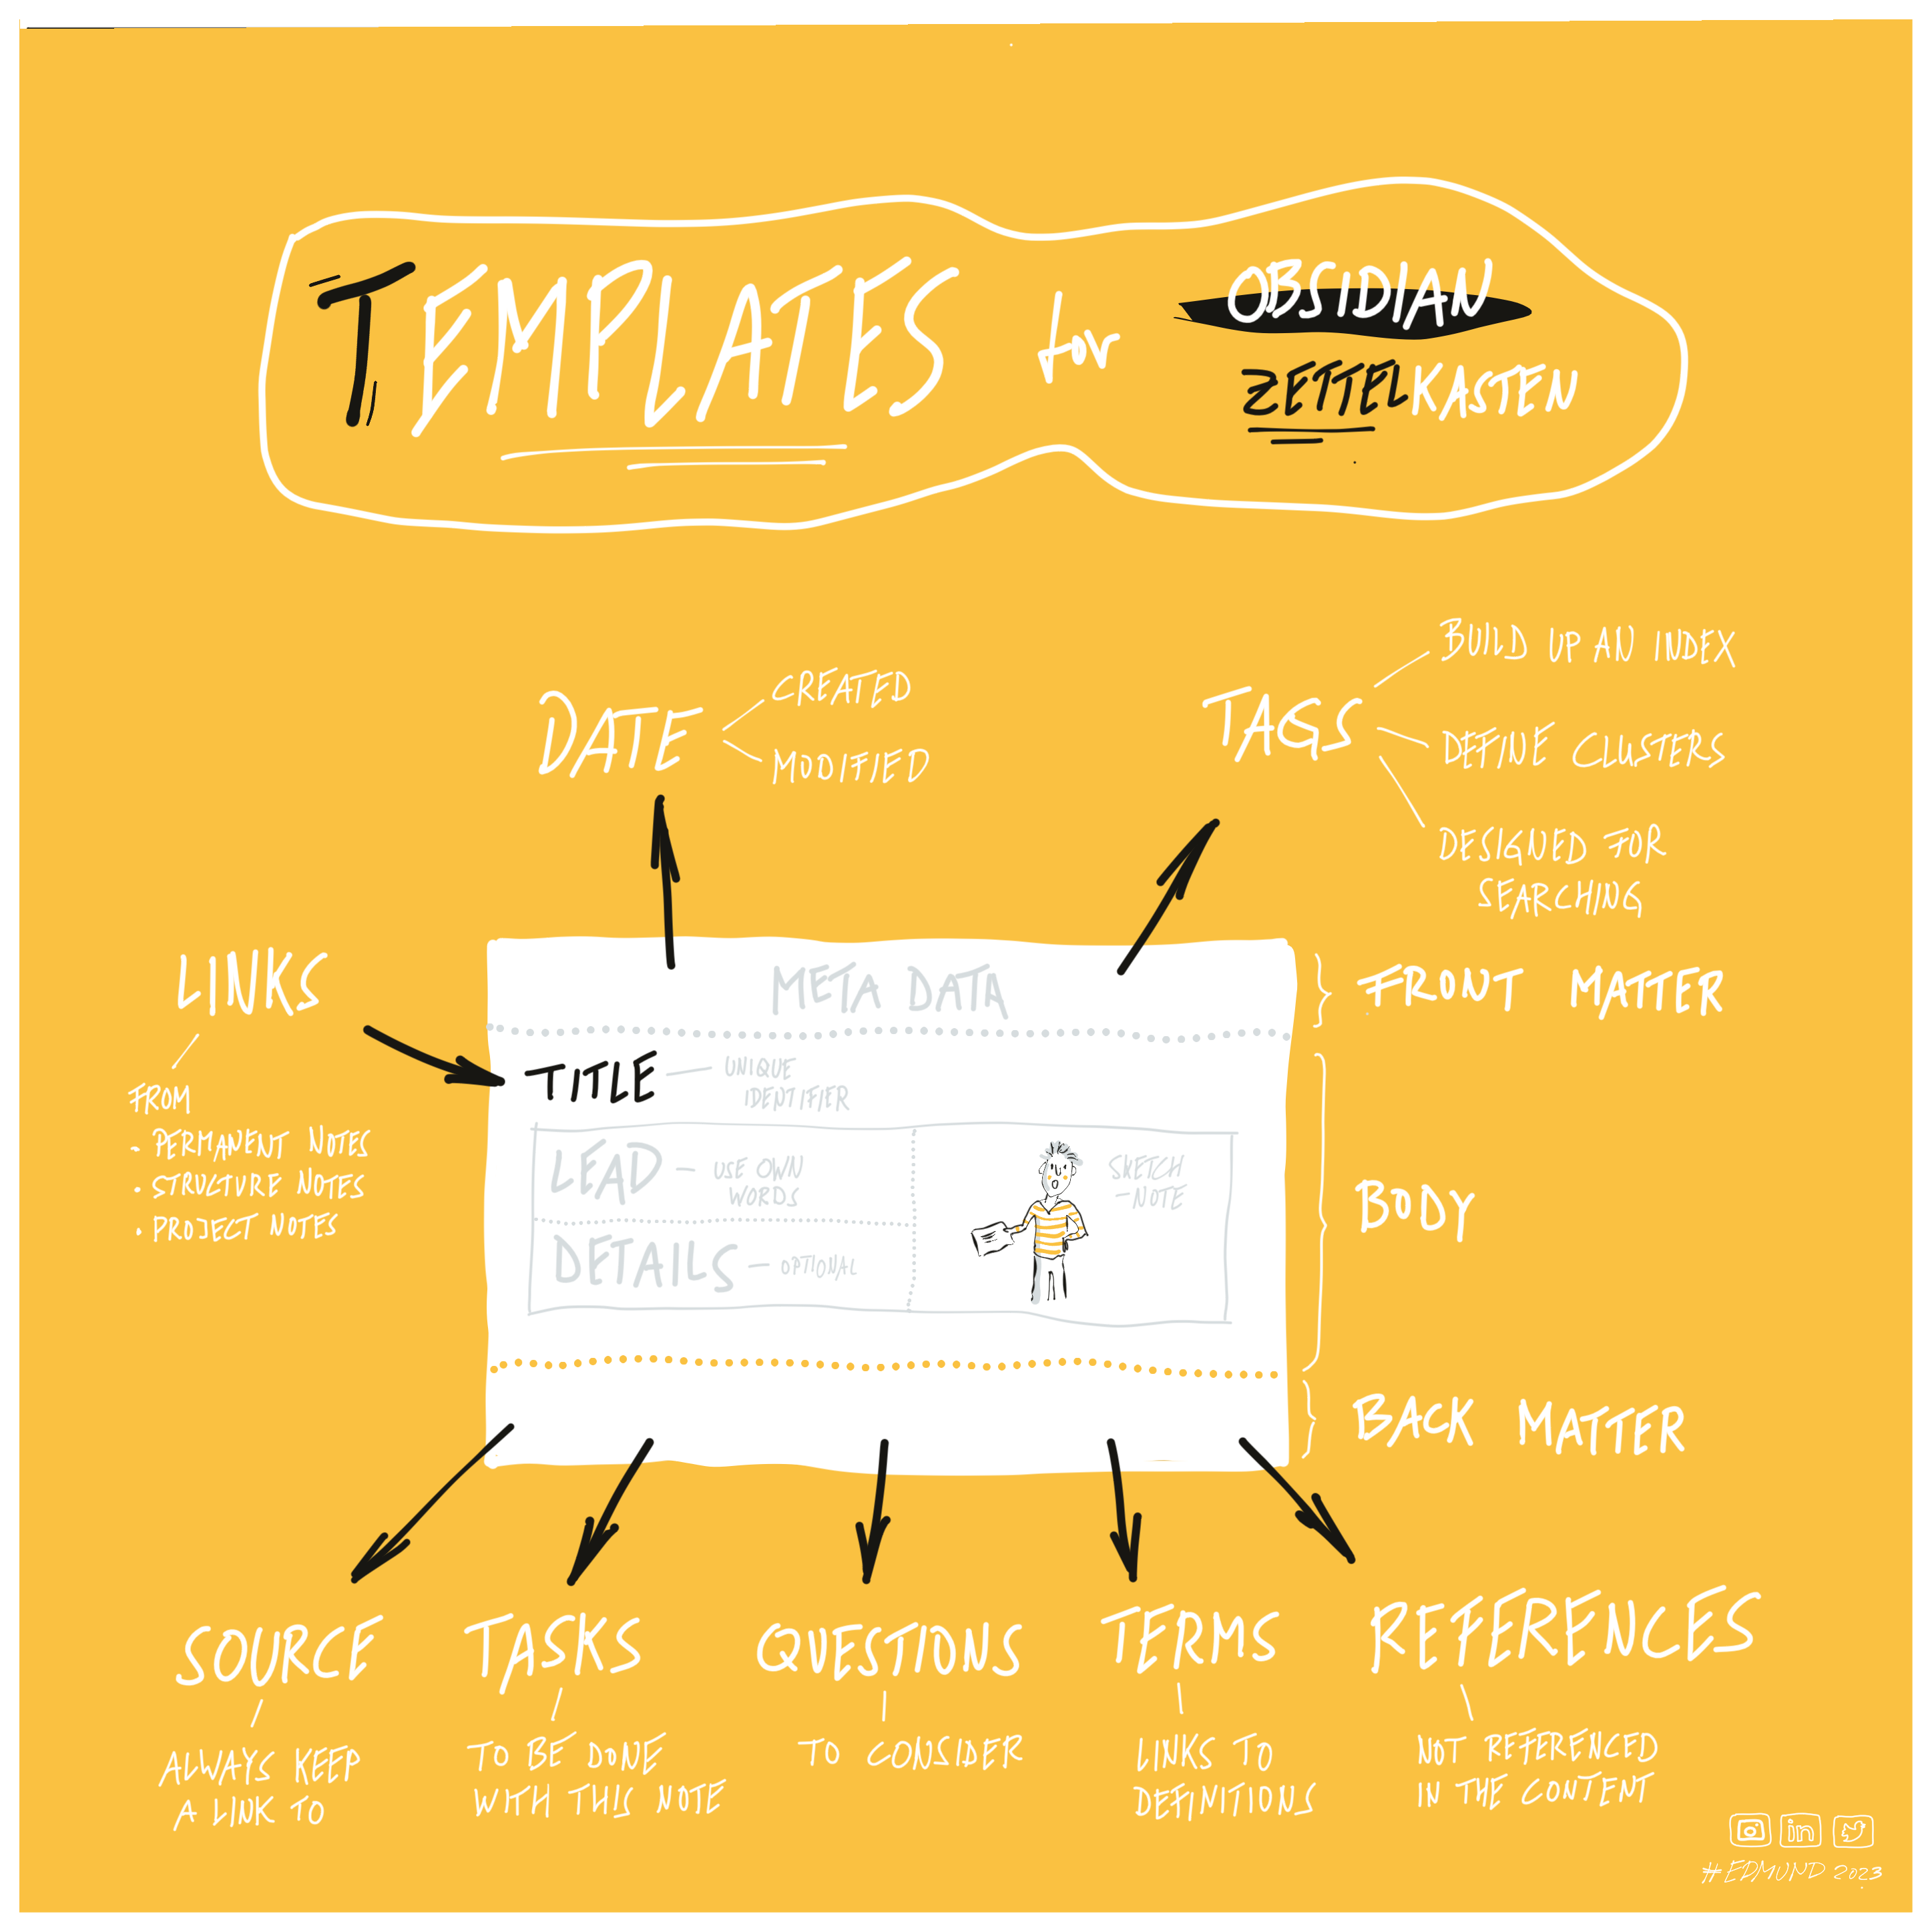 TEMPLATES for OBSIDIAN
ZETTELKASTEN
DATE
CREATED
MODIFIED
TAGS
BUILD UP AN INDEX
DEFINE CLUSTERS
DESIGNED FOR
SEARCHING
LINKS
FROM
• PERMANENT NOTES
• STRUCTURE NOTES
• PROJECT NOTES
META DATA
FRONT MATTER
TITLE — UNIQUE
IDENTIFIER
LEAD — USE OWN
WORDS
DETAILS — OPTIONAL
SKETCH
-NOTE
BODY
BACK MATTER
SOURCE
ALWAYS KEEP
A LINK TO
TASKS
TO BE DONE
WITH THIS NOTE
QUESTIONS
TO CONSIDER
TERMS
LINKS TO
DEFINITIONS
REFERENCES
NOT REFERENCED
IN THE CONTENT
in
#EDMUND 2023